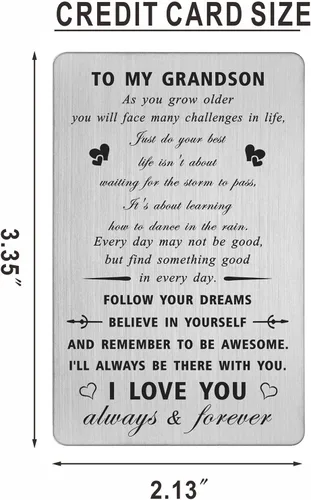 CREDIT CARD SIZE
TO MY GRANDSON
As you grow older
you will face many challenges in life,
Just do your best
life isn't about
waiting for the storm to pass,
It's about learning
how to dance in the rain.
Every day may not be good,
but find something good
in every day.
FOLLOW YOUR DREAMS
BELIEVE IN YOURSELF
AND REMEMBER TO BE AWESOME.
I'LL ALWAYS BE THERE WITH YOU.
I LOVE YOU
always & forever
3.35"
2.13"